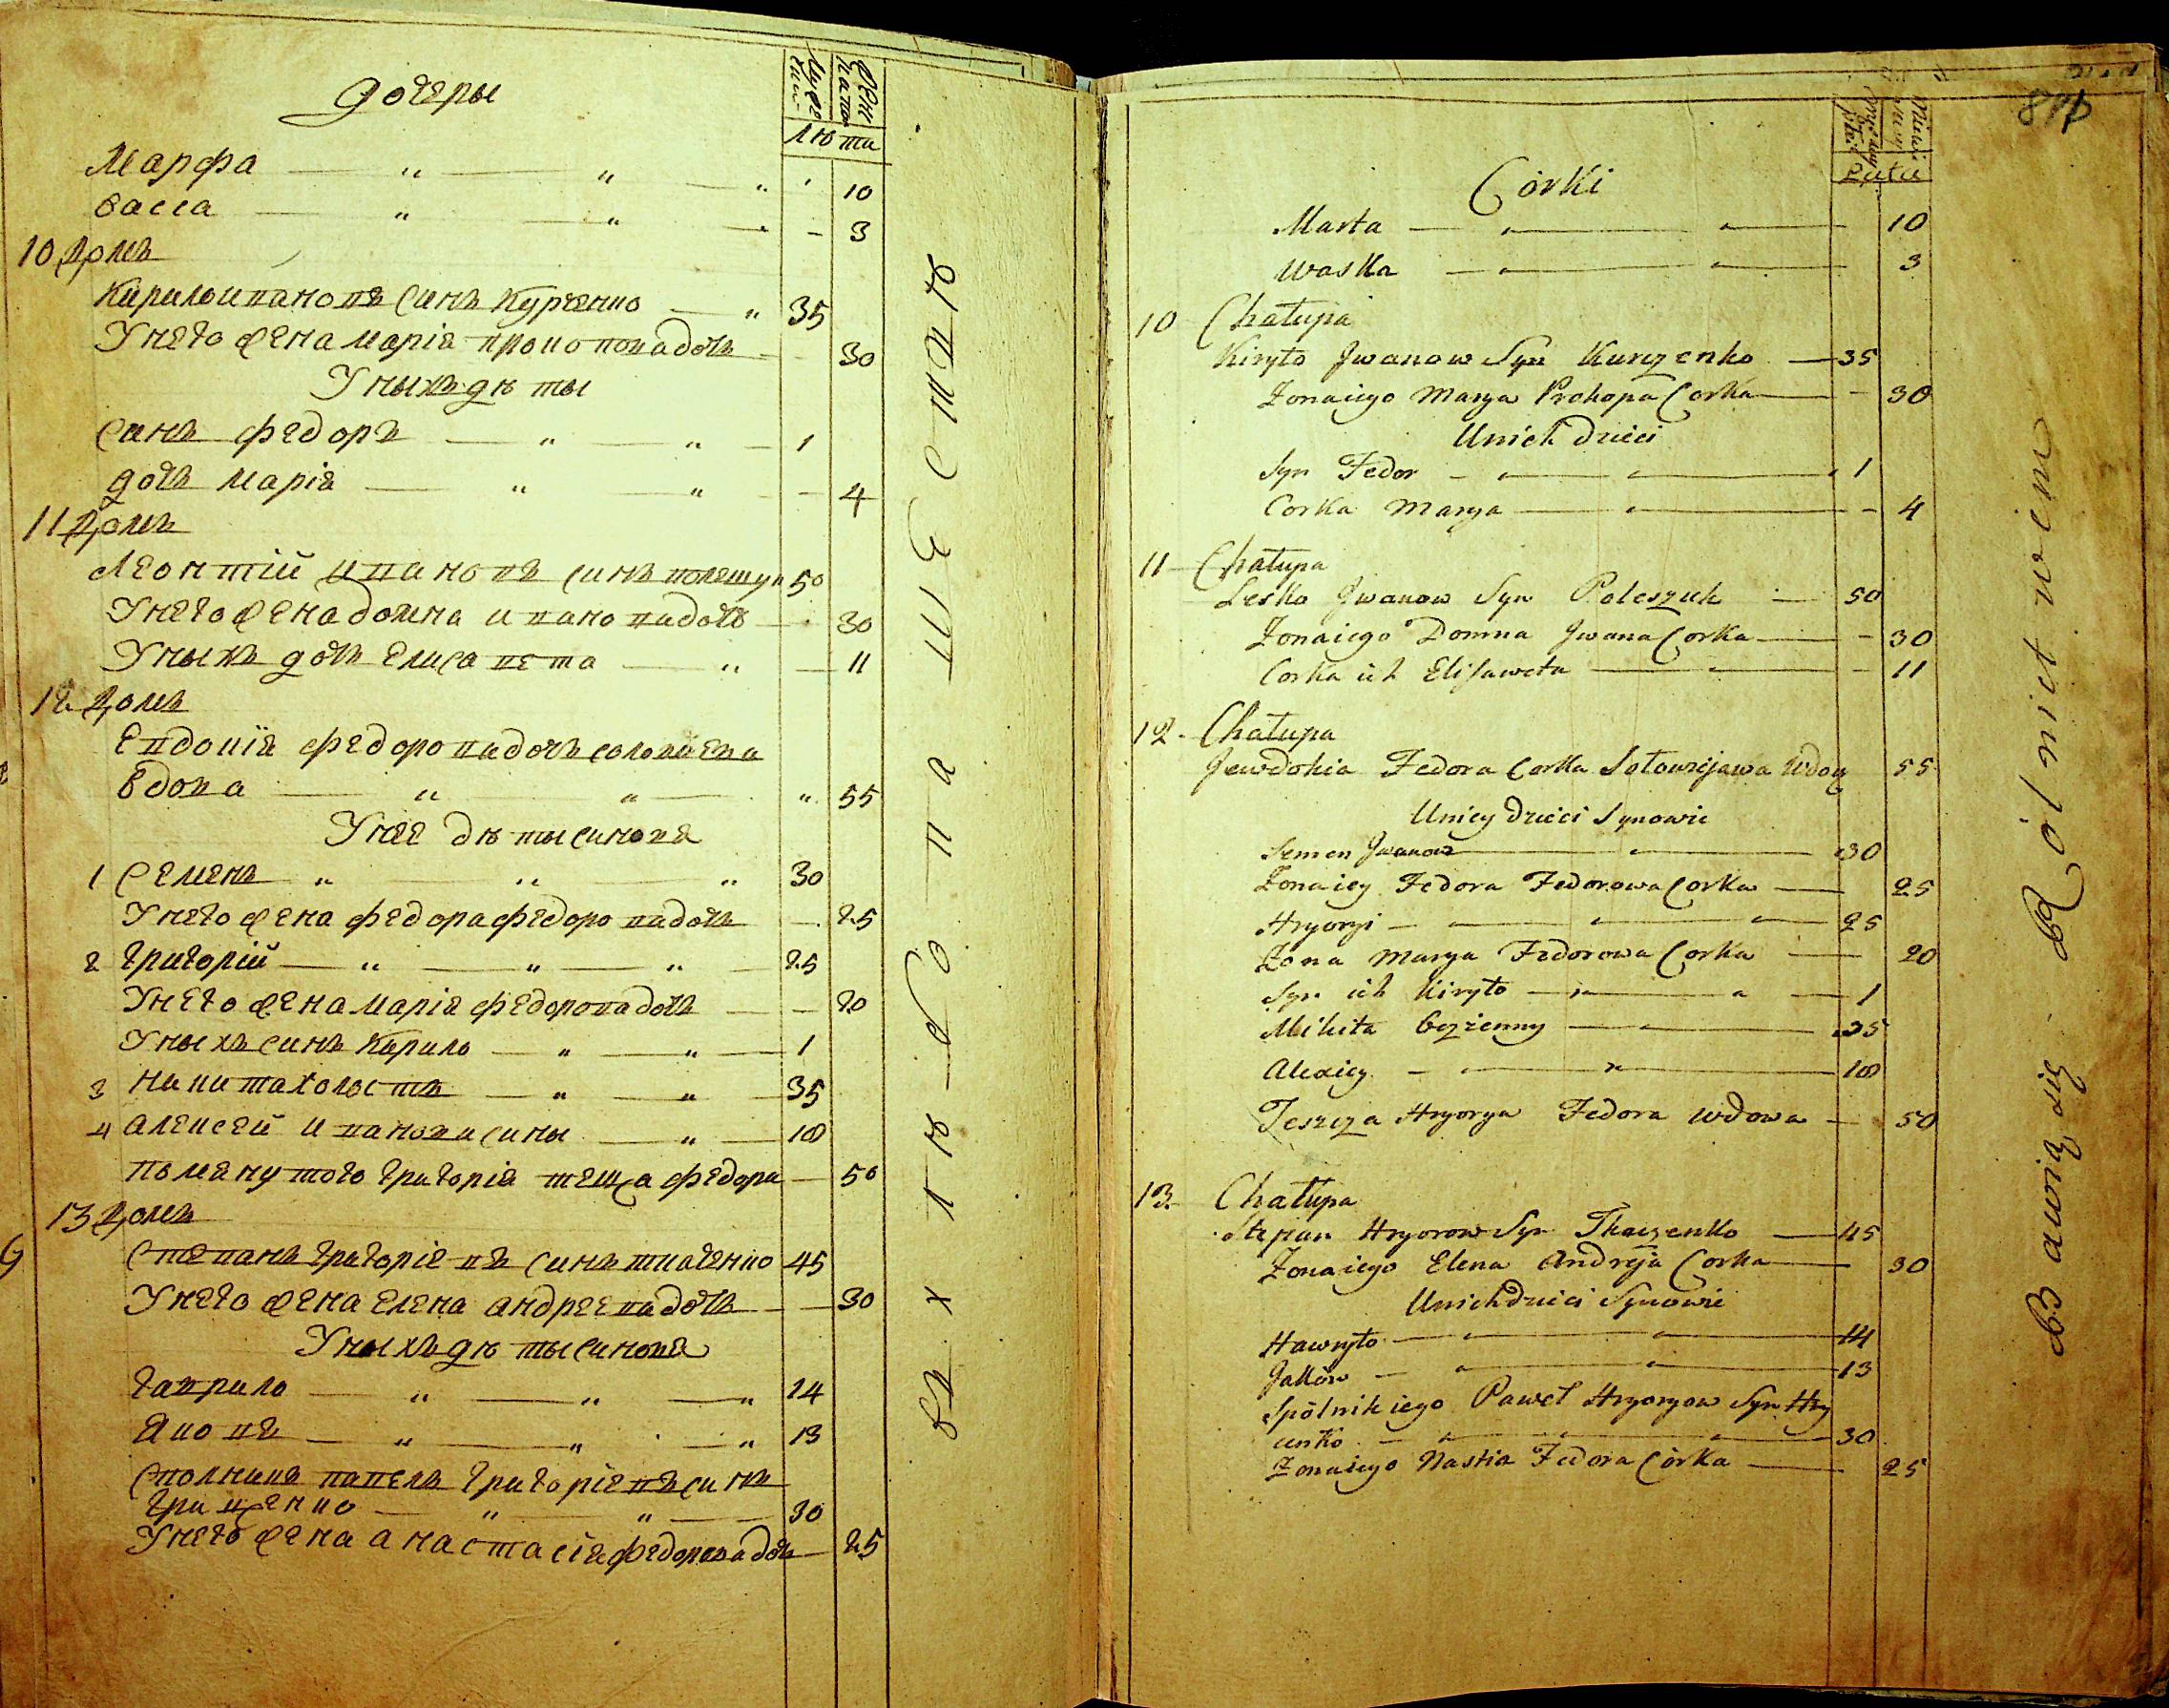 дочеры
Мужеска
Женска
Лета
Марфа — „ — „ — „ 10
Васса — „ — „ — - 3
10 Домъ
Кирило ивановъ синъ Курченко — „ 35
У него жена марія прокоповадочь — 30
У ныхъ дѣты
Синъ федоръ — „ — „ — 1
дочь марія — „ — „ - - 4
11 Домъ
Леонтій ивановъ синъ полешук 50
У него жена домна ивановадочь — 30
У ныхъ дочь Елисавета — „ — 11
12 Домъ
Евдокія федоровадочь соловьева
вдова — „ — „ — „ 55
У нее дѣты синовя
1 Семенъ „ — „ — „ 30
У него жена федора федоровадочь — 25
2 григорій — „ — „ — „ — 25
У него жена марія федоровадочь — — 20
У ныхъ синъ Кирило — „ — „ — 1
3 никита холостъ — „ — „ — 35
4 алексей ивановы сины — „ — 18
помянутого григорія теща федора — 50
13 Домъ
Степанъ григоріевъ синъ ткаченко 45
У него жена Елена андреевадочь — — 30
У ныхъ дѣты синовя
гаврило — „ — „ — „ 14
Яковъ — „ — „ — „ 13
Сполникъ павелъ григоріевъ синъ
гриценко — „ — „ — 30
У него жена анастасія федоровадочь — 25
въ хлѣбопашестве
84
Lata
Córki
Marta — „ — „ — 10
Waska — „ — „ — 3
10 Chałupa
Kiryło Jwanow Syn Kurczenko — 35
Żonaiego Marya Prokopa Corka — - 30
Unich dzieci
Syn Fedor - „ — „ — 1
Corka Marya — „ — - 4
11 Chałupa
Lesko Jwanow Syn Poleszuk — 50
Żonaiego Domna Jwana Corka — - 30
Corka ich Elisaweta — „ — - 11
12. Chałupa
Jewdokia Fedora Corka Sołowiejowa Wdow 55
Uniey dzieci Synowie
Semen Jwanow — „ — 30
Żonaiey Fedora Fedorowa Corka — 25
Hryoryi — „ — „ — 25
Żona Marya Fedorowa Corka — 20
Syn ich Kiryło — „ — „ — 1
Mikita bezżenny — „ — 35
Alexiey — „ — „ — 18
Teszcza Hryorya Fedora wdowa — 50
13. Chałupa
Stepan Hryorow Syn Tkaczenko — 45
Żonaiego Elena Andreja Corka — 30
Unich dzieci Synowie
Hawryło — „ — „ — 14
Jaków — „ — „ — 13
Spólnik iego Paweł Hryoryow Syn Hry
cenko — „ — „ — „ — 30
Żonaiego Nastia Fedora Córka — 25
Bawią się Rolnictwem